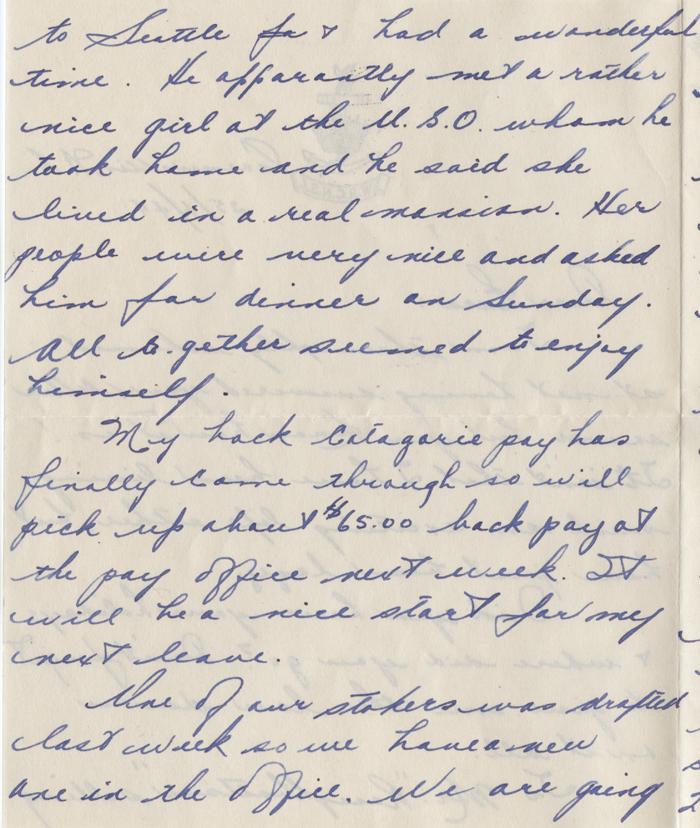 to Seattle for & had a wonderful
time. He apparantly met a rather
nice girl at the U.S.O. whom he
took home and he said she
lived in a real mansion. Her
people were very nice and asked
him for dinner on Sunday.
All to.gether seemed to enjoy
himself.
My back Catagorie pay has
finally come through so will
pick up about $65.00 back pay at
the pay office next week. It
will be a nice start for my
next leave.
One of our stokers was drafted
last week so we have a new
one in the office. We are going